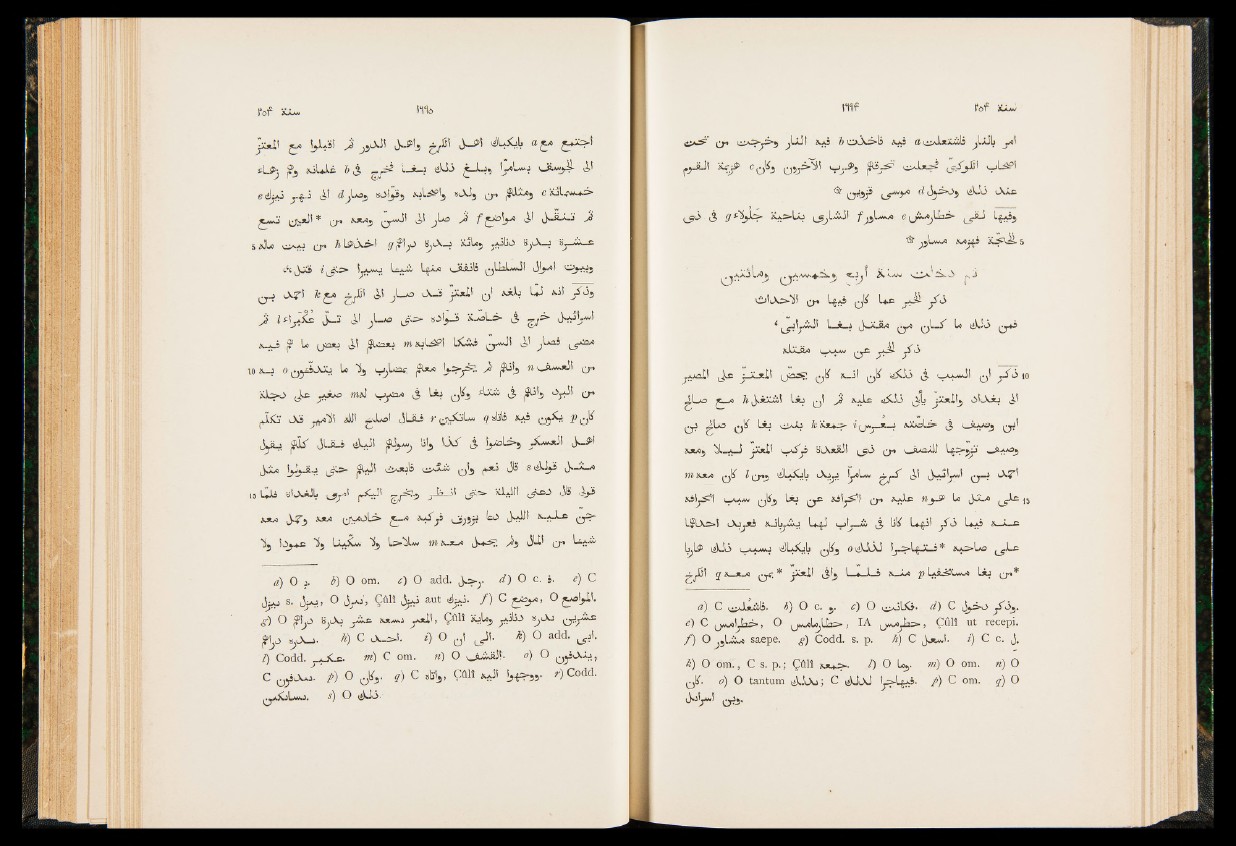 سنة ٢٥٤ ١٦٩۴
امر بالنار فاشتعلت a فيه فاخذت b فيه النار وخرجت من تحت
اصحاب الكوكبىّ فجعلت تحرقهم وهرب الآخرون وكان c هزيمة القوم
عند ذلك ودخول d موسى قزوين ☆
وفيها لقى خطارمش e مساور f الشارى بناحية جلولاء g فى ذى
5 الحجّة فهزمه مساور ☆
ثم دخلت سنة اربع وخمسين ومائتين
ذكر الخبر عما كان فيها من الاحداث
فمن ذلك ما كان من مقتل بغا الشرابىّ،
ذكر الخبر عن سبب مقتله
10 ذُكر ان السبب فى ذلك كان انه كان يحضّ المعتزّ على المصير
الى بغداد والمعتزّ يأبى ذلك عليه ثم ان بغا اشتغل h مع صالح
ابن وصيف فى خاصّته بعرس i جمعة k بنت بغا كان صالح بن
وصيف تزوّجها للنصف من ذى القعدة فركب المعتزّ ليلا ومعه
احمد بن اسرائيل الى كرخ سامرا يريد بايكباك ومن l كان معه m
15 على مثل ما هو n عليه من انحرافه عن بغا وكان سبب انحرافه
عنه فيما ذكر انهما كانا فى شراب لهما يشربانه فعربد احدهما
على صاحبه *فتهاجرا لذلك o وكان بايكباك بسبب ذلك هاربا
*من بغا مستخفيا p منه فلمّا وافى المعتزّ *بمن معه q الكرخ
a) C فاشغلت. b) O c. و. c) O فكانت. d) C وذكر دخول.
e) C , O , IA , Çûlî ut recepi.
f) O مشاور saepe. g) Codd. s. p. h) C اسعل. i) C c. ل.
k) O om., C s. p.; Çûlî جمعه. l) O وما. m) O om. n) O
كان. o) O tantum بذلك; C فيهاجرا لذلك. p) C om. q) O
وبن اسرائيل.
سنة ٢٥٤ ١٦٩٥
اجتمع مع a بايكباك اهل الكرخ واهل الدور ثم اقبلوا مع المعتزّ
الى الجوسق بسامرا وبلغ ذلك بغا فخرج b فى غلمانه وهم زهاء
خمسمائة c ومثلهم من ولده واصحابه وقوّاده وصار d الى نهر نيزك e
ثم تنقّل الى مواضع f ثم صار الى السنّ ومعه من *العين تسع
5 عشرة بدرة دنانير ومائة بدرة دراهم g اخذها h من بيت ماله
وبيوت اموال السلطان فانفق منها شيئا يسيرا حتى i قتل،
وذُكر انه لمّا بلغه ان المعتزّ قد صار الى الكرخ مع k احمد بن
اسرائيل خرج فى خاصّة قوّاده حتى صار الى تلّ عُكْبَراء l ثم
مضى فصار الى السنّ فشكا اصحابه m بعضهم الى بعض ما هم فيه
10 من العسف n وانهم لم يخرجوا معهم مضارب ولا ما يتدفّون o به
من البرد وانهم فى شتاء وكان بغا فى مضرب له m صغير على دجلة
كان p يكون فيه فاتاه q ساتكين r فقال اصلح الله الامير قد تكلّم
اهل العسكر وخاضوا فى كذا وانا رسولهم اليك فقال كلّهم يقول
مثل قولك s قال نعم وان شئت فابعث اليهم حتى يقولوا مثل
15 قولى قال دعنى الليلة حتى انظر ويخرج اليكم امرى بالغداة فلمّا
جنّ عليه الليل دعا بزورق فركبه مع خادمين معه وحمل معه
شيئا من المال ولم يحمل معه m سلاحا ولا سكّينا ولا عمودا ولا
a) O . b) O om. c) O add. رجل. d) O c. ف. e) C
s. , O , Çûlî aut نيزك. f) C موضع, O المواضع.
g) O , Çûlî
h) C . i) O الى ان. k) O add. ابى.
l) Codd. . m) C om. n) O . o) O ,
C . p) O وكان. q) C واتاه, Çûlî ووجهوا اليه. r) Codd.
. s) O ذلك.